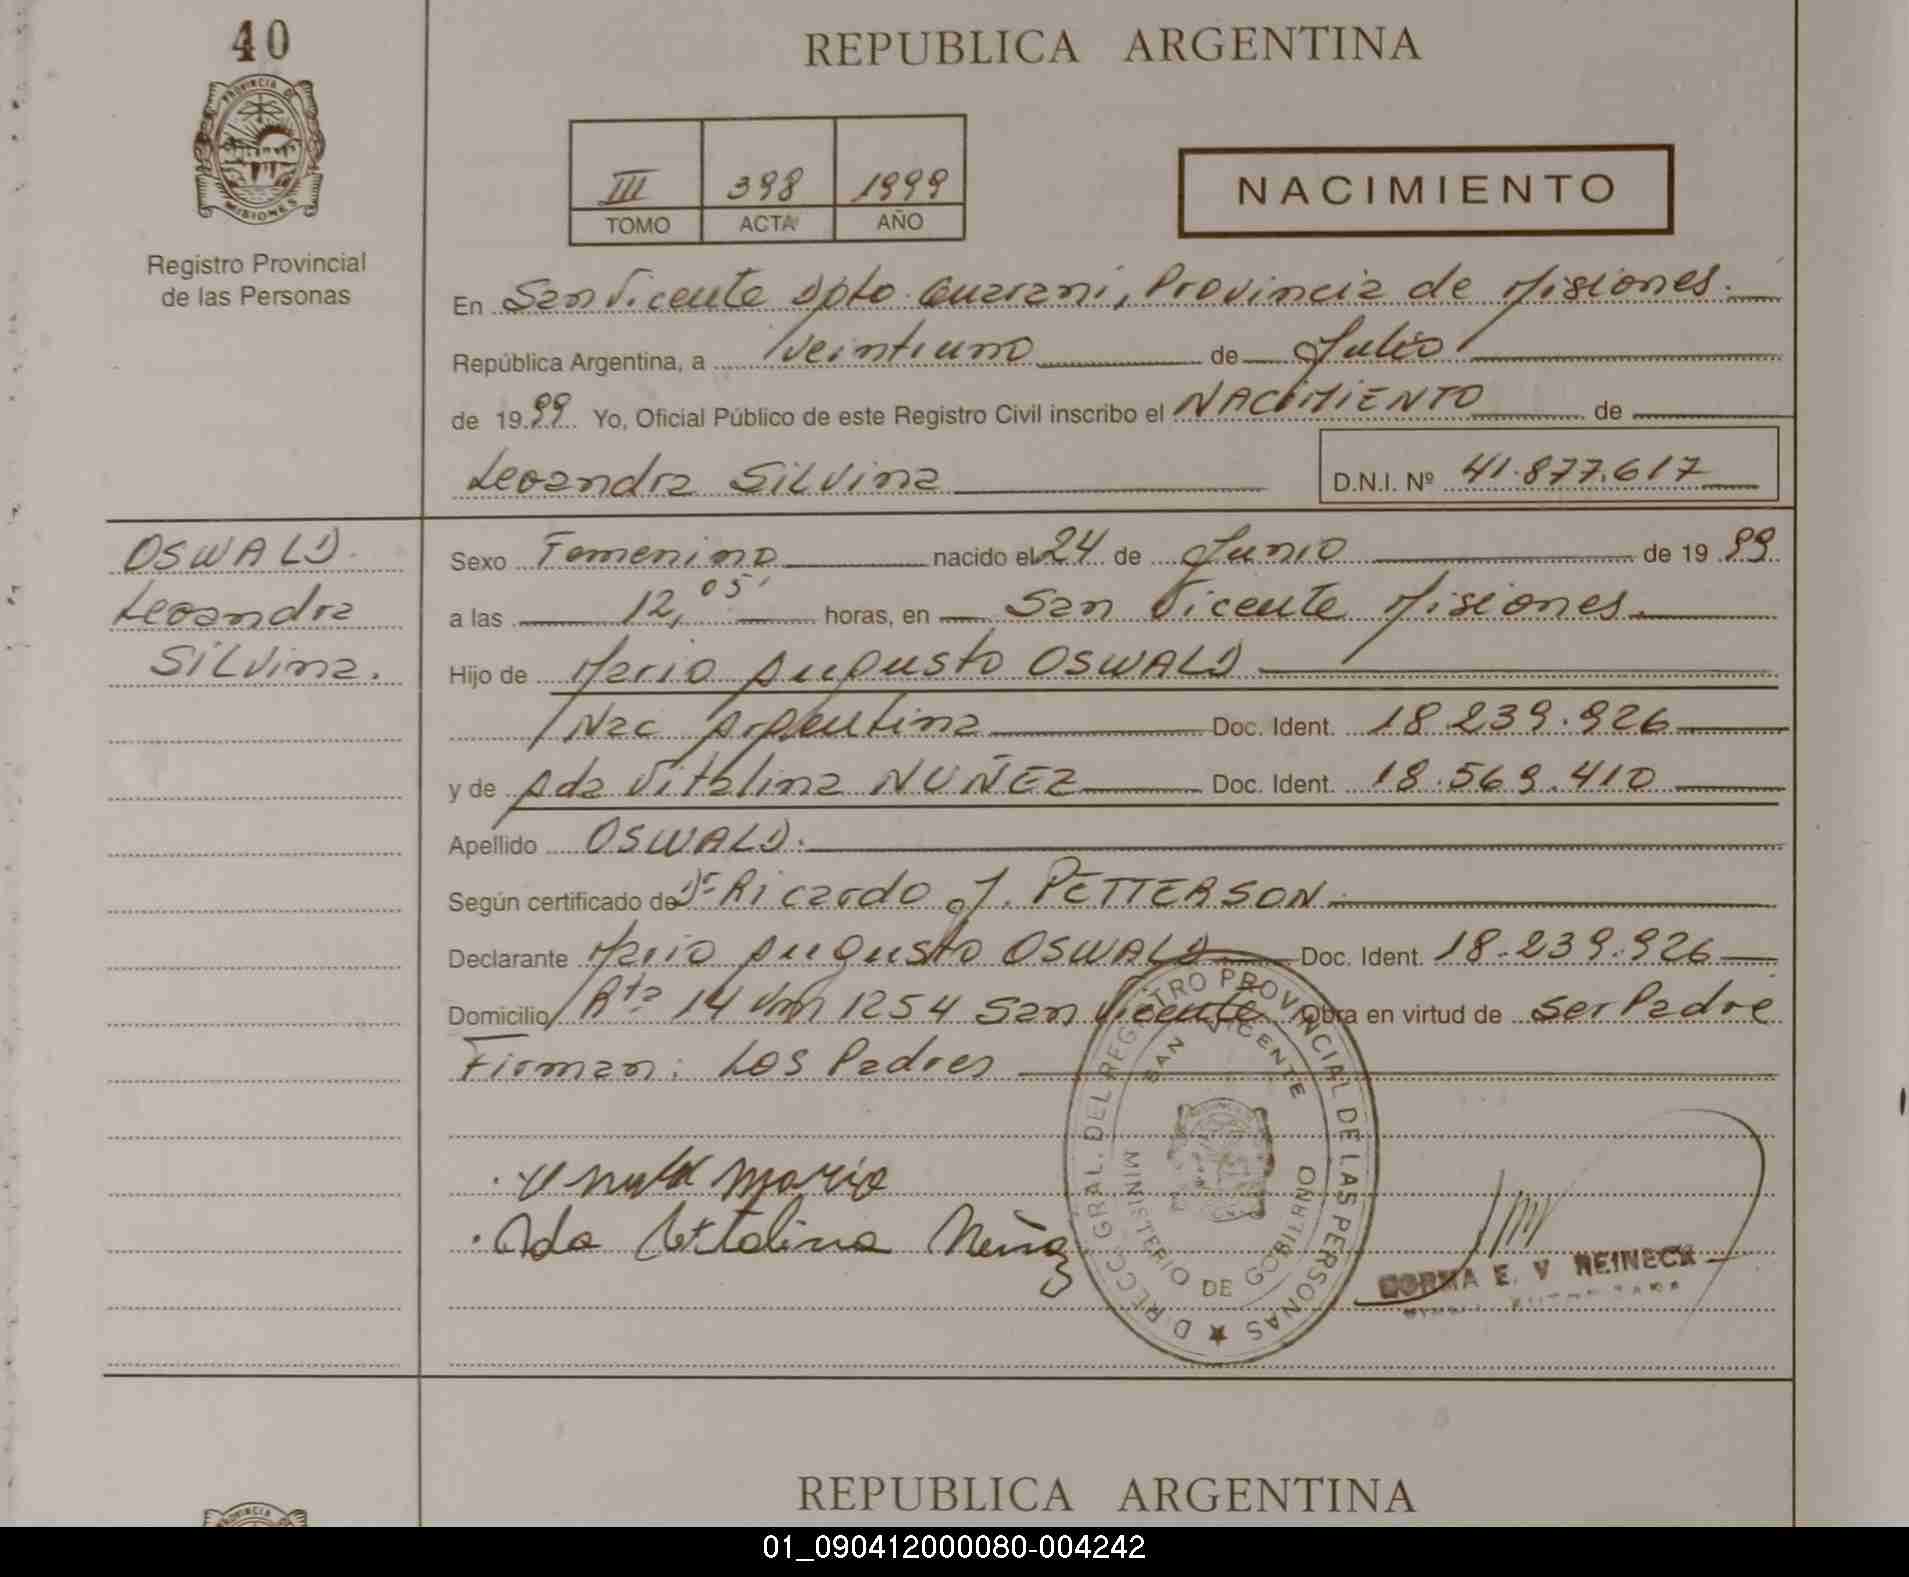 40
REPUBLICA ARGENTINA
PROVINCIA DE
MISIONES
Registro Provincial
de las Personas
III 398 1999
TOMO ACTA AÑO
NACIMIENTO
En San Vicente Dpto. Guarani, Provincia de Misiones.
República Argentina, a veintiuno de Julio
de 1999 Yo, Oficial Público de este Registro Civil inscribo el NACIMIENTO de
Leoandra Silvina D.N.I. Nº 41.877.617
OSWALD.
Leoandra
Silvina.
Sexo Femenino nacido el 24 de Junio de 1999
a las 12,05' horas, en San Vicente Misiones.
Hijo de Mario Augusto OSWALD
Nac Argentina Doc. Ident. 18.239.926
y de Ada Vitalina NUÑEZ Doc. Ident. 18.569.410
Apellido OSWALD.
Según certificado de Dr Ricardo J. PETTERSON.
Declarante Mario Augusto OSWALD Doc. Ident. 18.239.926
Domicilio Rta 14 km 1254 San Vicente Obra en virtud de ser Padre
Firman: Los Padres
DIRECC. GRAL. DEL REGISTRO PROVINCIAL DE LAS PERSONAS
SAN VICENTE
MINISTERIO DE GOBIERNO
Mario
Ada Vitalina Núñez
NORMA E. V. REINECK
REPUBLICA ARGENTINA
PROVINCIA
01_090412000080-004242